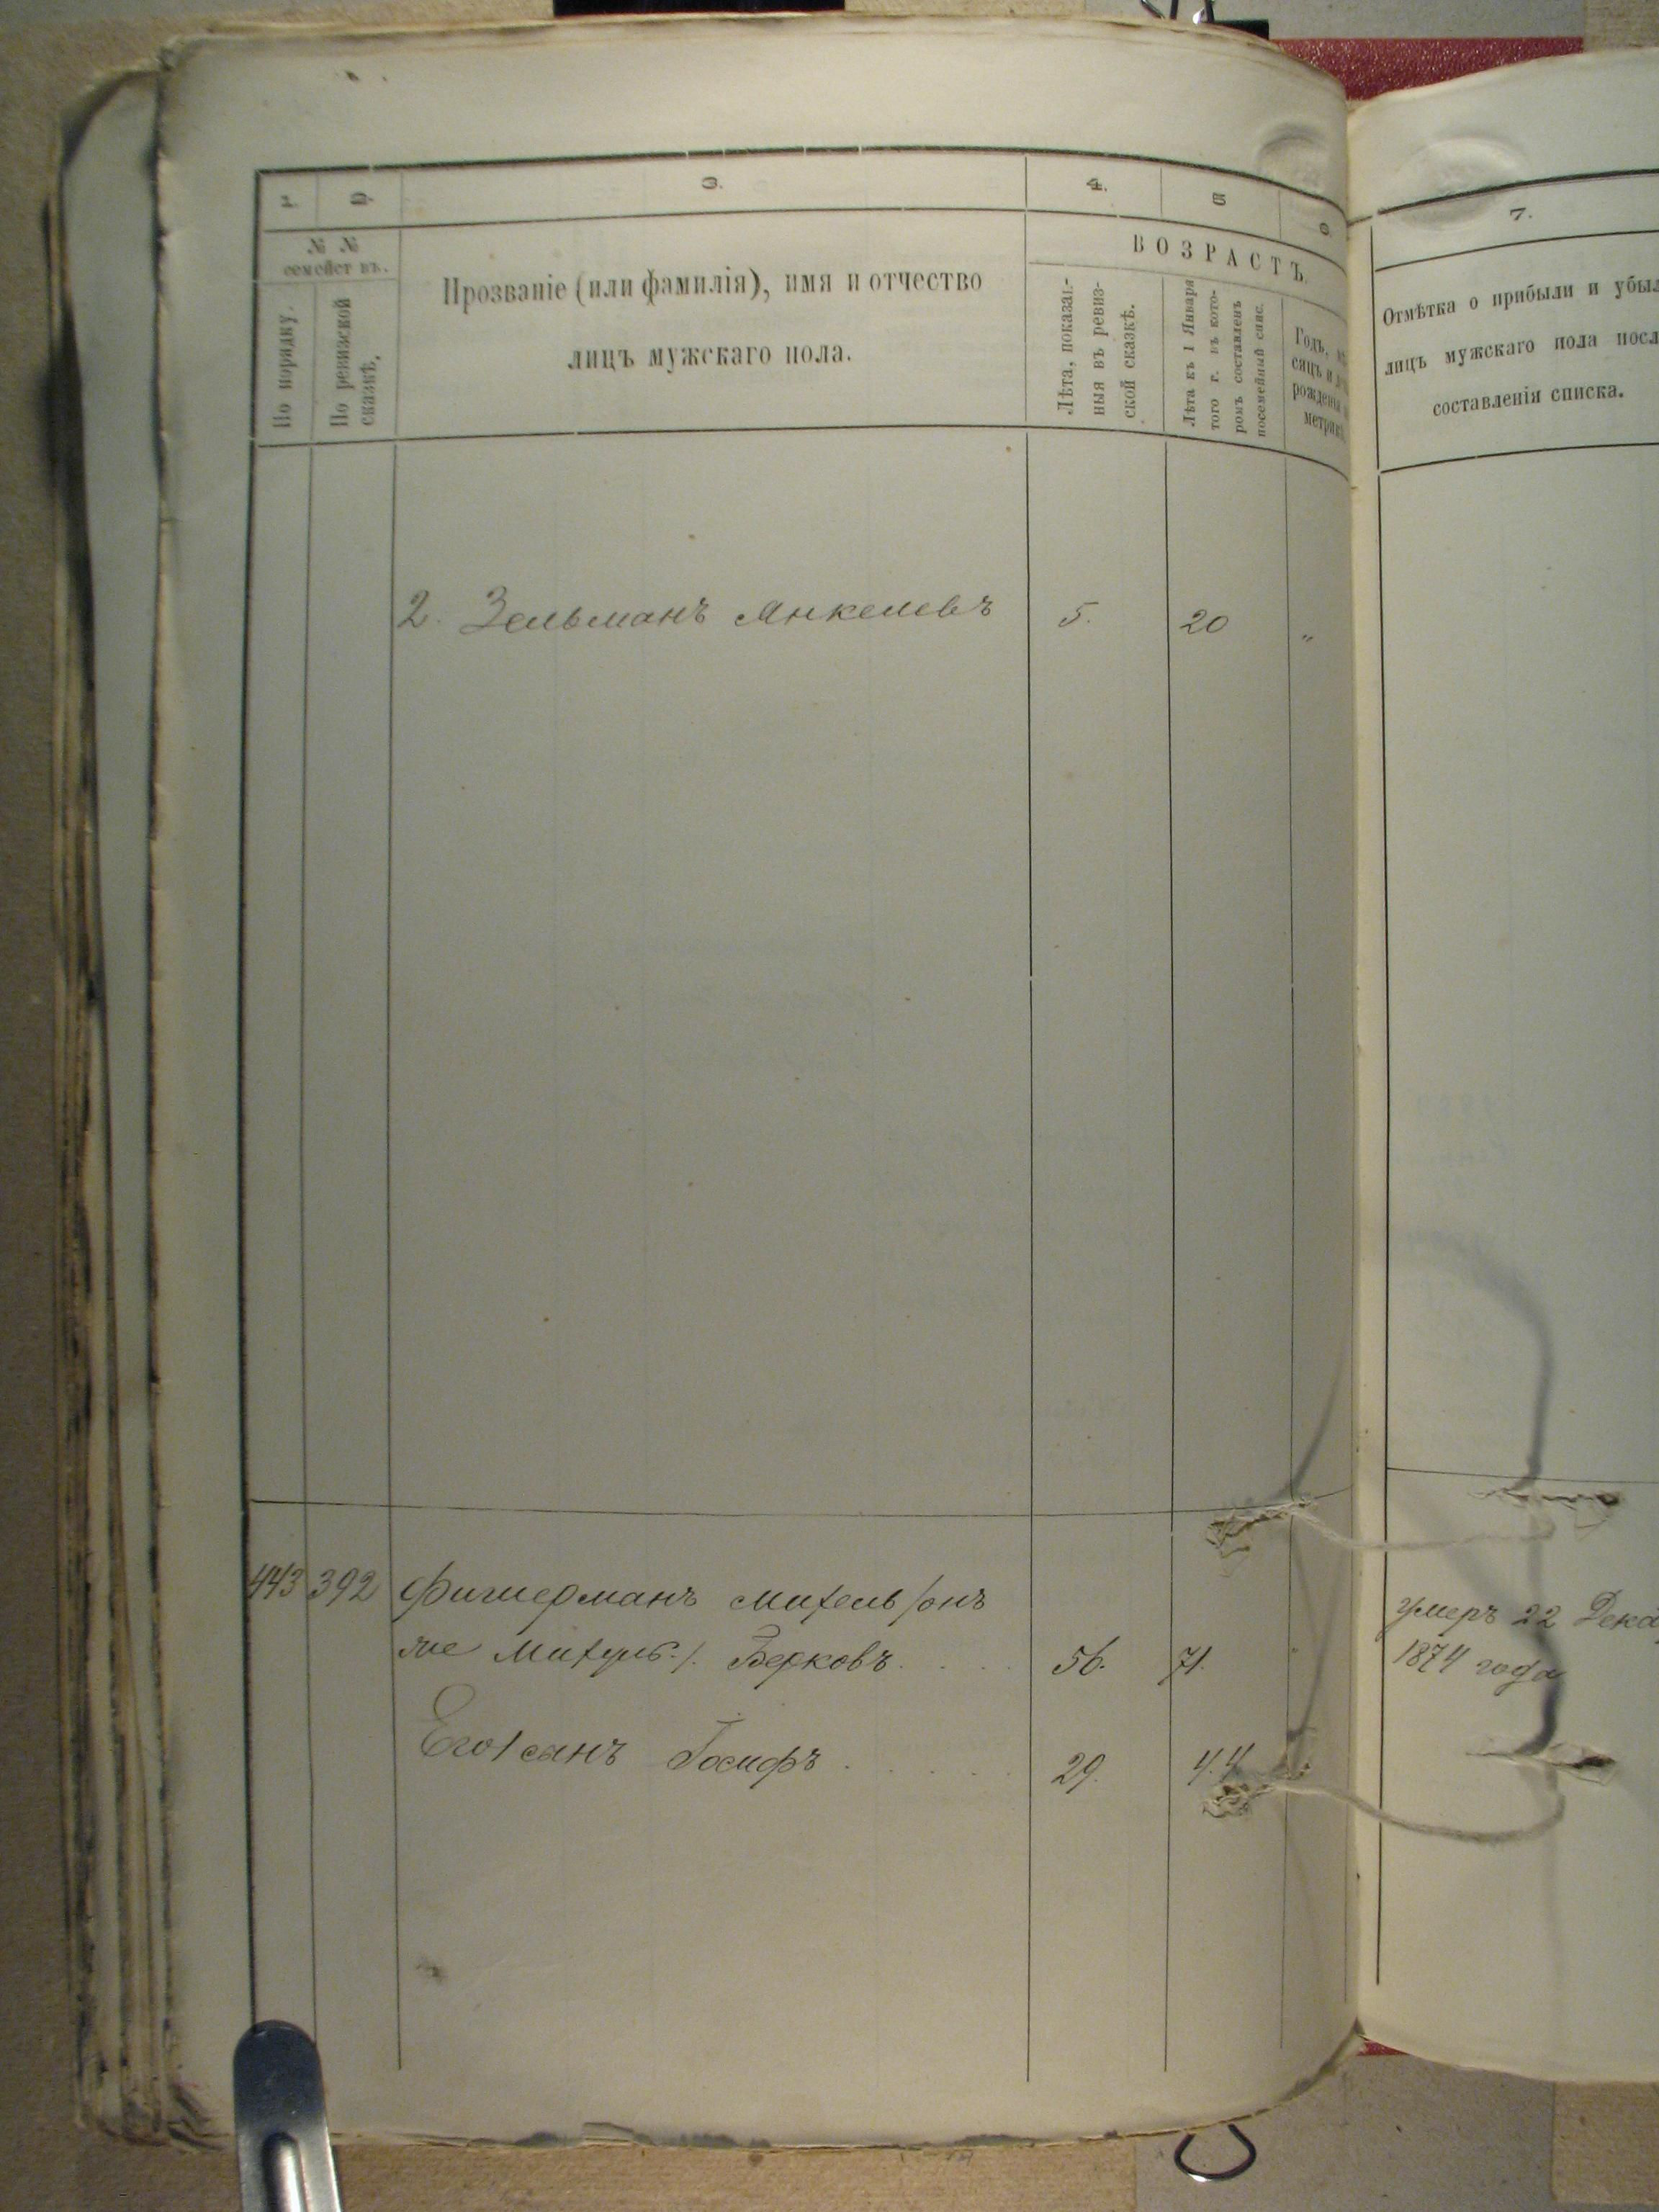 1. 2. 3. 4. 5 6.
№ №
семействъ.
По порядку.
По ревизской
сказкѣ.
Прозваніе (или фамилія), имя и отчество
лицъ мужскаго пола.
ВОЗРАСТЪ.
Лѣта, показан-
ныя въ ревиз-
ской сказкѣ.
Лѣта къ 1 Января
того г. въ кото-
ромъ составленъ
посемейный спис.
Годъ, мѣ
сяцъ и
рожденія
метрик
2. Зельманъ Янкелевъ 5. 20 "
443 392 Фишерманъ Михель /онъ
же Михуль./. Берковъ 56. 71. "
Его 1 сынъ Іосифъ 29. 44
7.
Отмѣтка о прибыли и убыл
лицъ мужскаго пола посл
составленія списка.
умеръ 22 Дека
1874 года